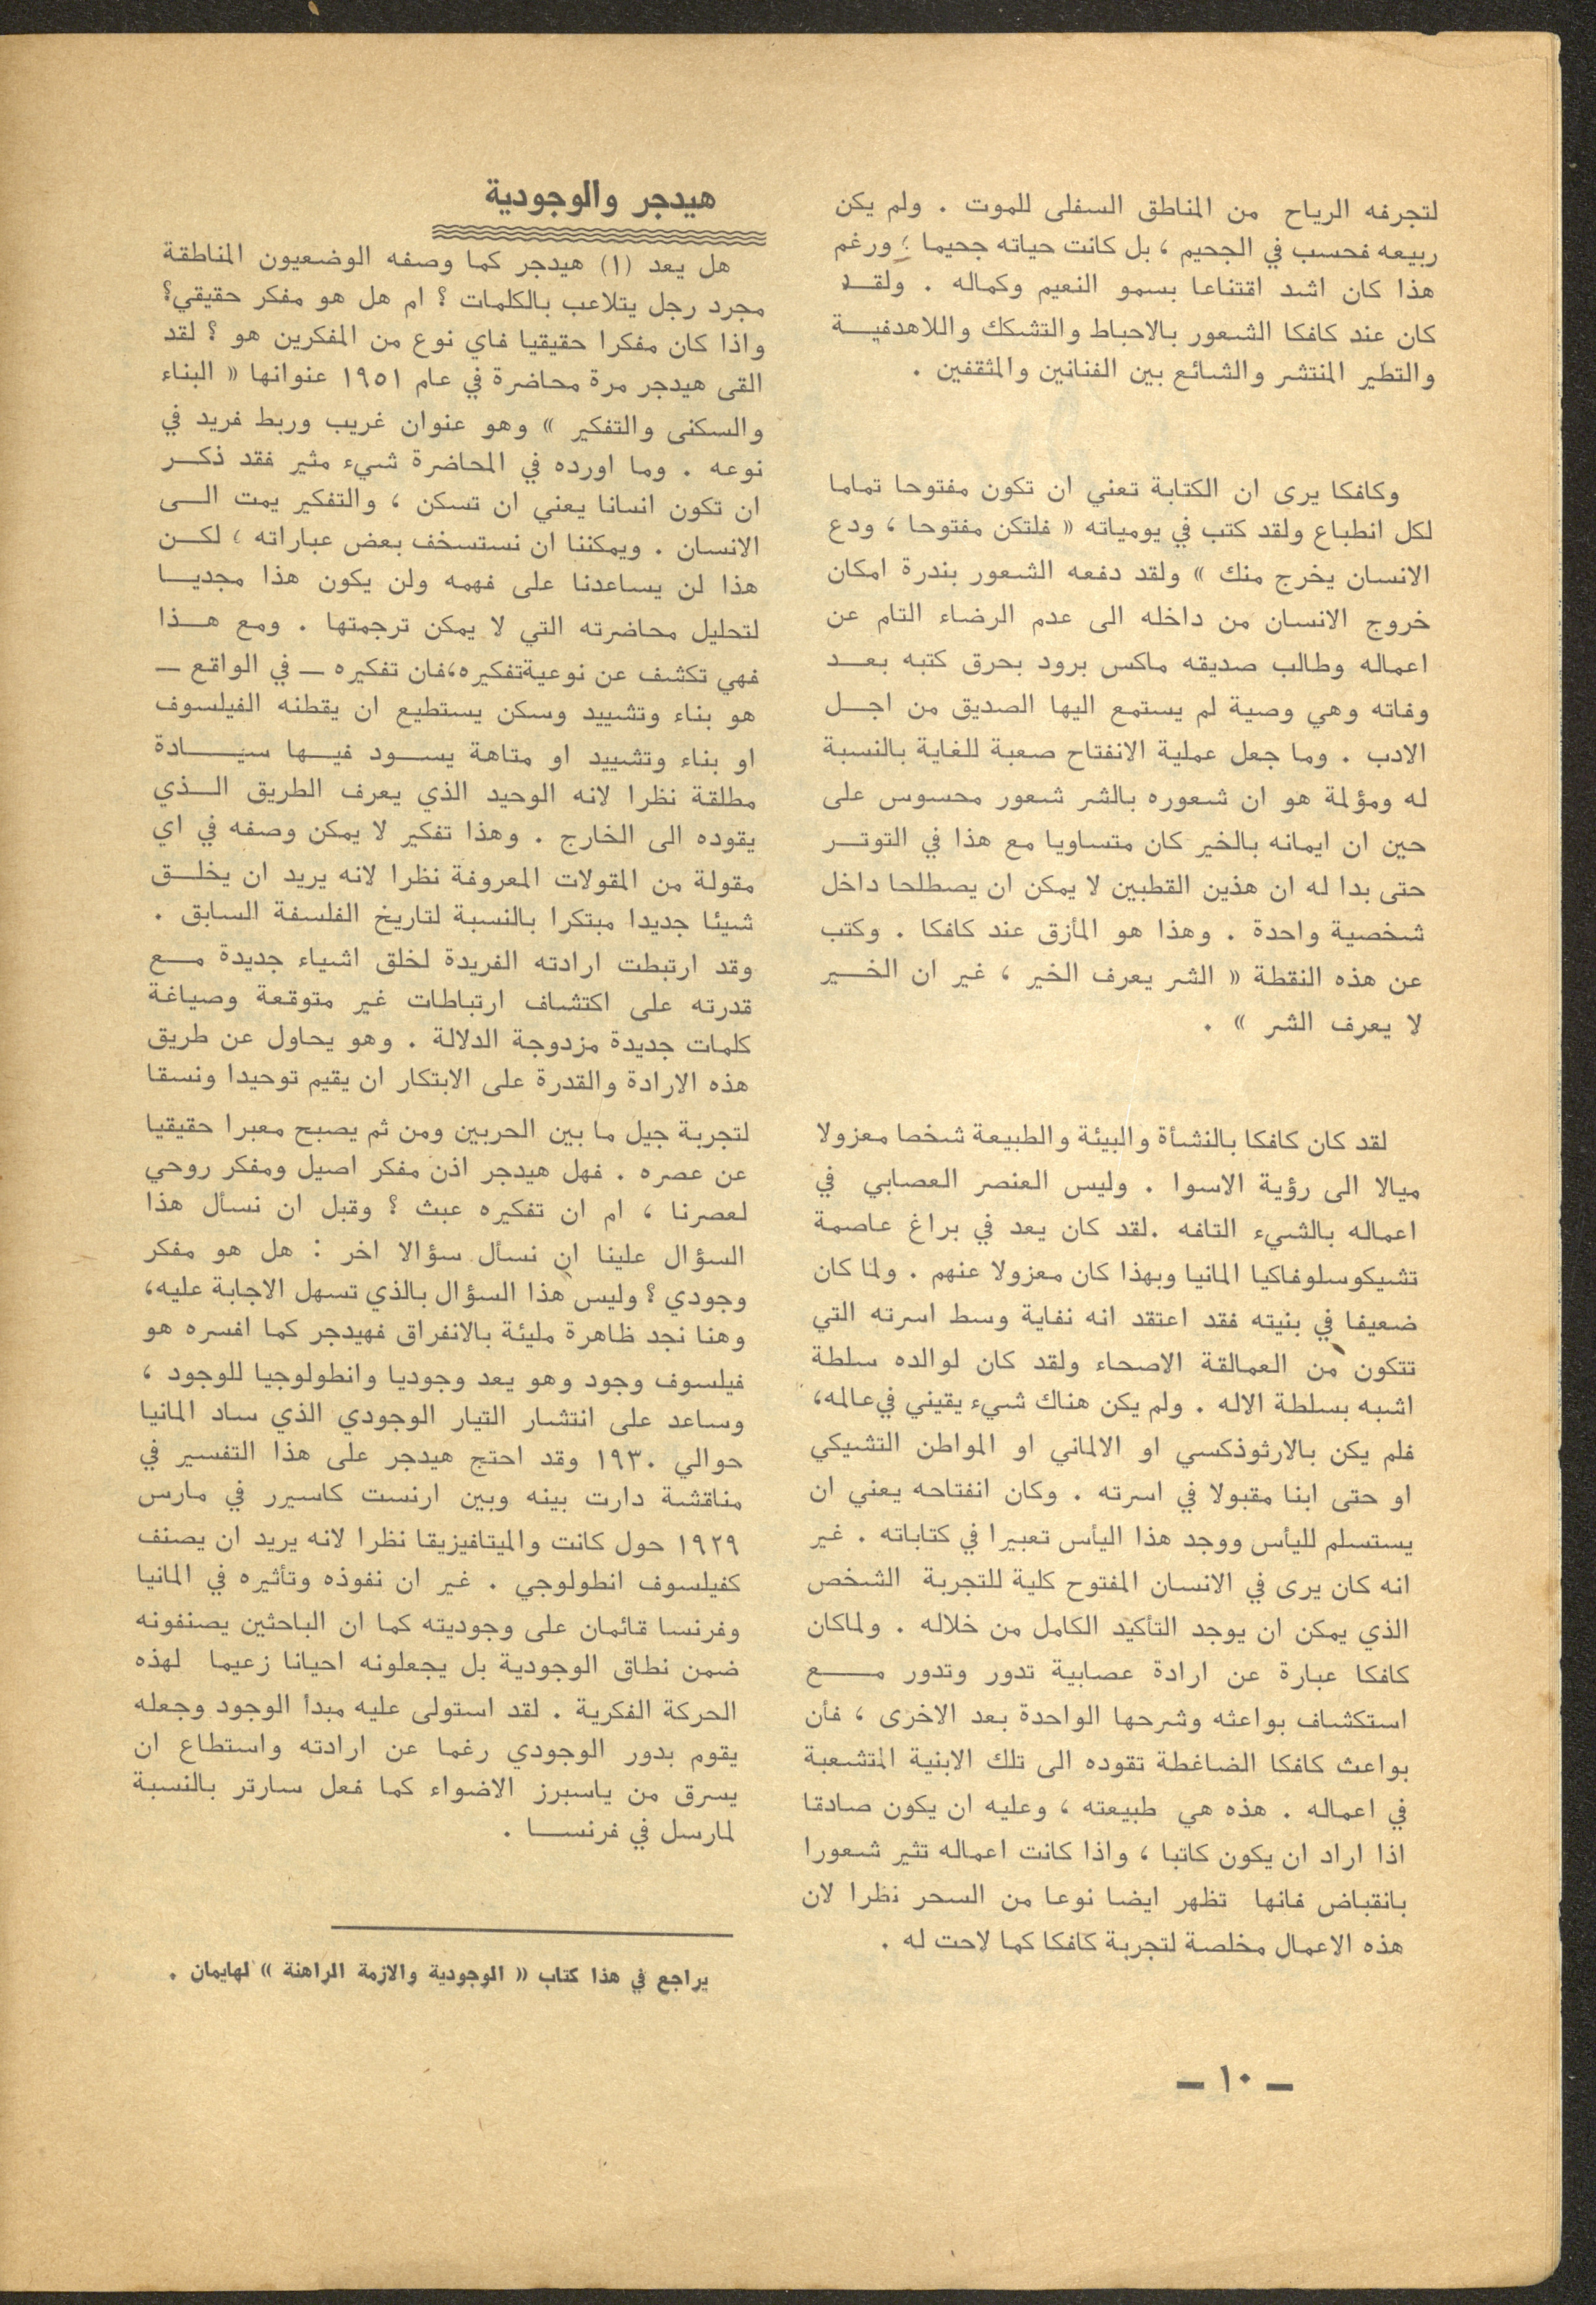 لتجرفه الرياح من المناطق السفلى للموت . ولم يكن
ربيعه فحسب في الجحيم ، بل كانت حياته جحيما ؛ ورغم
هذا كان اشد اقتناعا بسمو النعيم وكماله . ولقـد
كان عند كافكا الشعور بالاحباط والتشكك واللاهدفيـة
والتطير المنتشر والشائع بين الفنانين والمثقفين .
وكافكا يرى ان الكتابة تعني ان تكون مفتوحا تماما
لكل انطباع ولقد كتب في يومياته « فلتكن مفتوحا ، ودع
الانسان يخرج منك » ولقد دفعه الشعور بندرة امكان
خروج الانسان من داخله الى عدم الرضاء التام عن
اعماله وطالب صديقه ماكس برود بحرق كتبه بعـد
وفاته وهي وصية لم يستمع اليها الصديق من اجـل
الادب . وما جعل عملية الانفتاح صعبة للغاية بالنسبة
له ومؤلمة هو ان شعوره بالشر شعور محسوس على
حين ان ايمانه بالخير كان متساويا مع هذا في التوتـر
حتى بدا له ان هذين القطبين لا يمكن ان يصطلحا داخل
شخصية واحدة . وهذا هو المأزق عند كافكا . وكتب
عن هذه النقطة « الشر يعرف الخير ، غير ان الخـير
لا يعرف الشر » .
لقد كان كافكا بالنشأة والبيئة والطبيعة شخصا معزولا
ميالا الى رؤية الاسوا . وليس العنصر العصابي في
اعماله بالشيء التافه .لقد كان يعد في براغ عاصمة
تشيكوسلوفاكيا المانيا وبهذا كان معزولا عنهم . ولما كان
ضعيفا في بنيته فقد اعتقد انه نفاية وسط اسرته التي
تتكون من العمالقة الاصحاء ولقد كان لوالده سلطة
اشبه بسلطة الاله . ولم يكن هناك شيء يقيني في عالمه،
فلم يكن بالارثوذكسي او الالماني او المواطن التشيكي
او حتى ابنا مقبولا في اسرته . وكان انفتاحه يعني ان
يستسلم لليأس ووجد هذا اليأس تعبيرا في كتاباته . غير
انه كان يرى في الانسان المفتوح كلية للتجربة الشخص
الذي يمكن ان يوجد التأكيد الكامل من خلاله . ولماكان
كافكا عبارة عن ارادة عصابية تدور وتدور مـــع
استكشاف بواعثه وشرحها الواحدة بعد الاخرى ، فأن
بواعث كافكا الضاغطة تقوده الى تلك الابنية المتشعبة
في اعماله . هذه هي طبيعته ، وعليه ان يكون صادقا
اذا اراد ان يكون كاتبا ، واذا كانت اعماله تثير شعورا
بانقباض فانها تظهر ايضا نوعا من السحر نظرا لان
هذه الاعمال مخلصة لتجربة كافكا كما لاحت له .
هيدجر والوجودية
هل يعد (١) هيدجر كما وصفه الوضعيون المناطقة
مجرد رجل يتلاعب بالكلمات ؟ ام هل هو مفكر حقيقي؟
واذا كان مفكرا حقيقيا فاي نوع من المفكرين هو ؟ لقد
القى هيدجر مرة محاضرة في عام ١٩٥١ عنوانها « البناء
والسكنى والتفكير » وهو عنوان غريب وربط فريد في
نوعه . وما اورده في المحاضرة شيء مثير فقد ذكـر
ان تكون انسانا يعني ان تسكن ، والتفكير يمت الـى
الانسان . ويمكننا ان نستسخف بعض عباراته ، لكـن
هذا لن يساعدنا على فهمه ولن يكون هذا مجديـا
لتحليل محاضرته التي لا يمكن ترجمتها . ومع هـذا
فهي تكشف عن نوعيةتفكيره،فان تفكيره ــ في الواقع ــ
هو بناء وتشييد وسكن يستطيع ان يقطنه الفيلسوف
او بناء وتشييد او متاهة يســود فيـها سيــادة
مطلقة نظرا لانه الوحيد الذي يعرف الطريق الـذي
يقوده الى الخارج . وهذا تفكير لا يمكن وصفه في اي
مقولة من المقولات المعروفة نظرا لانه يريد ان يخلـق
شيئا جديدا مبتكرا بالنسبة لتاريخ الفلسفة السابق .
وقد ارتبطت ارادته الفريدة لخلق اشياء جديدة مـع
قدرته على اكتشاف ارتباطات غير متوقعة وصياغة
كلمات جديدة مزدوجة الدلالة . وهو يحاول عن طريق
هذه الارادة والقدرة على الابتكار ان يقيم توحيدا ونسقا
لتجربة جيل ما بين الحربين ومن ثم يصبح معبرا حقيقيا
عن عصره . فهل هيدجر اذن مفكر اصيل ومفكر روحي
لعصرنا ، ام ان تفكيره عبث ؟ وقبل ان نسأل هذا
السؤال علينا ان نسأل سؤالا اخر : هل هو مفكر
وجودي ؟ وليس هذا السؤال بالذي تسهل الاجابة عليه،
وهنا نجد ظاهرة مليئة بالانفراق فهيدجر كما افسره هو
فيلسوف وجود وهو يعد وجوديا وانطولوجيا للوجود ،
وساعد على انتشار التيار الوجودي الذي ساد المانيا
حوالي ١٩٣٠ وقد احتج هيدجر على هذا التفسير في
مناقشة دارت بينه وبين ارنست كاسيرر في مارس
١٩٢٩ حول كانت والميتافيزيقا نظرا لانه يريد ان يصنف
كفيلسوف انطولوجي . غير ان نفوذه وتأثيره في المانيا
وفرنسا قائمان على وجوديته كما ان الباحثين يصنفونه
ضمن نطاق الوجودية بل يجعلونه احيانا زعيما لهذه
الحركة الفكرية . لقد استولى عليه مبدأ الوجود وجعله
يقوم بدور الوجودي رغما عن ارادته واستطاع ان
يسرق من ياسبرز الاضواء كما فعل سارتر بالنسبة
لمارسل في فرنسـا .
يراجع في هذا كتاب « الوجودية والازمة الراهنة » لهايمان .
– ١٠ –